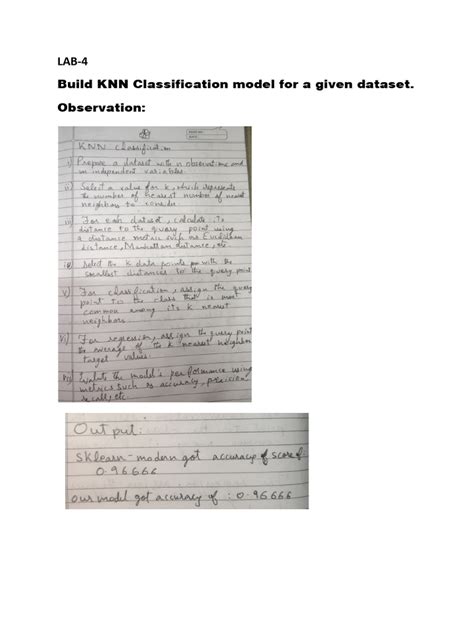 LAB-4
Build KNN Classification model for a given dataset.
Observation:
KNN Classification
i) Prepare a dataset with n observations and
m independent variables.
ii) Select a value for k, which represents
the number of nearest number of nearest
neighbors to consider
iii) For each dataset, calculate its
distance to the query point using
a distance metric such as Euclidean
distance, Manhattan distance, etc
iv) Select the K data points with the
smallest distances to the query point
v) For classification, assign the query
point to the class that is most
common among its k nearest
neighbors.
vi) For regression, assign the query point
the average of the K nearest neighbor
target values.
vii) Evaluate the model's performance using
metrics such as accuracy, precision,
recall, etc.
Output:
sklearn-modern got accuracy of score of
0.96666
our model got accuracy of : 0.96666